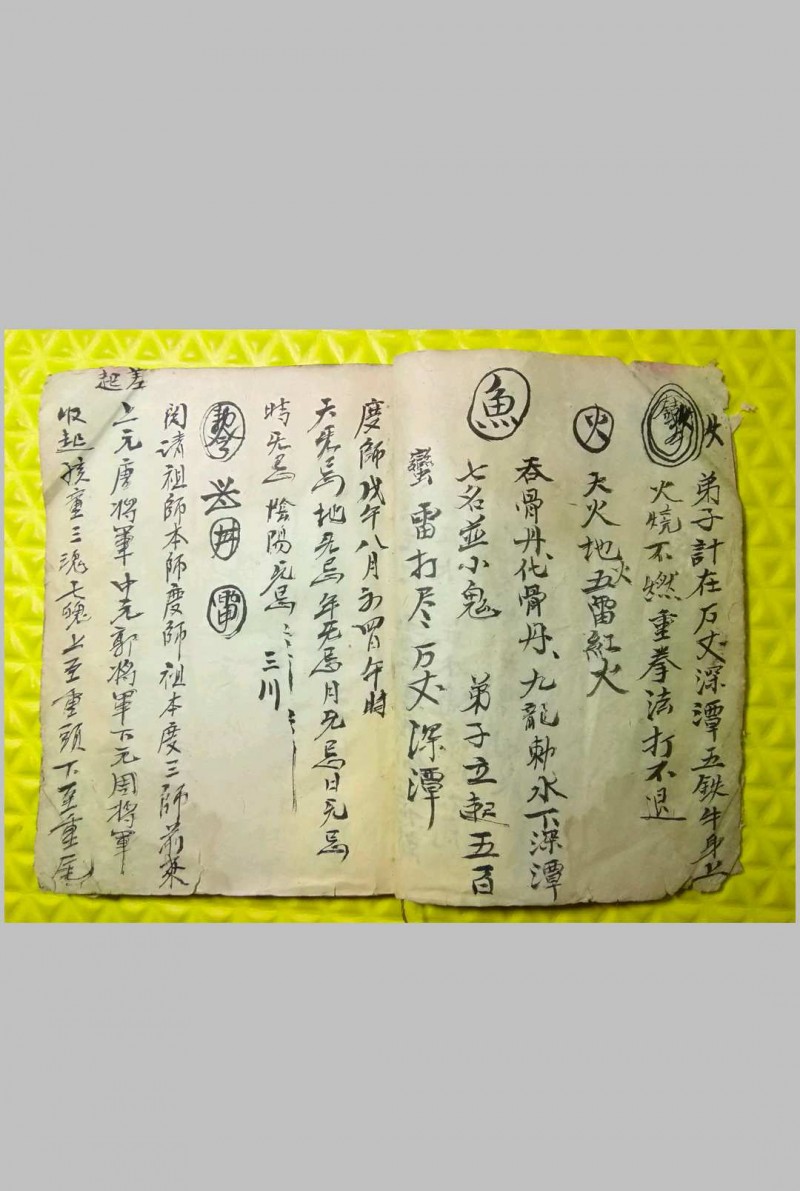 火
弟子計在万丈深潭五鉄牛身上
火燒不燃重拳法打不退
火
天火地五雷紅火
火
吞骨丹化骨丹、九龍勅水下深潭
魚
七名並小鬼 弟子立起五百
蠻雷打尽万丈深潭
度師戊午八月初四日午時
天无忌地无忌年无忌月无忌日无忌
時无忌陰陽无忌
三川
井
雷
関清祖師本師度師祖本度三師前來
差起
上元唐将軍中元郭将軍下元周将軍
收起孩童三魂七魄上至童頭下至童尾